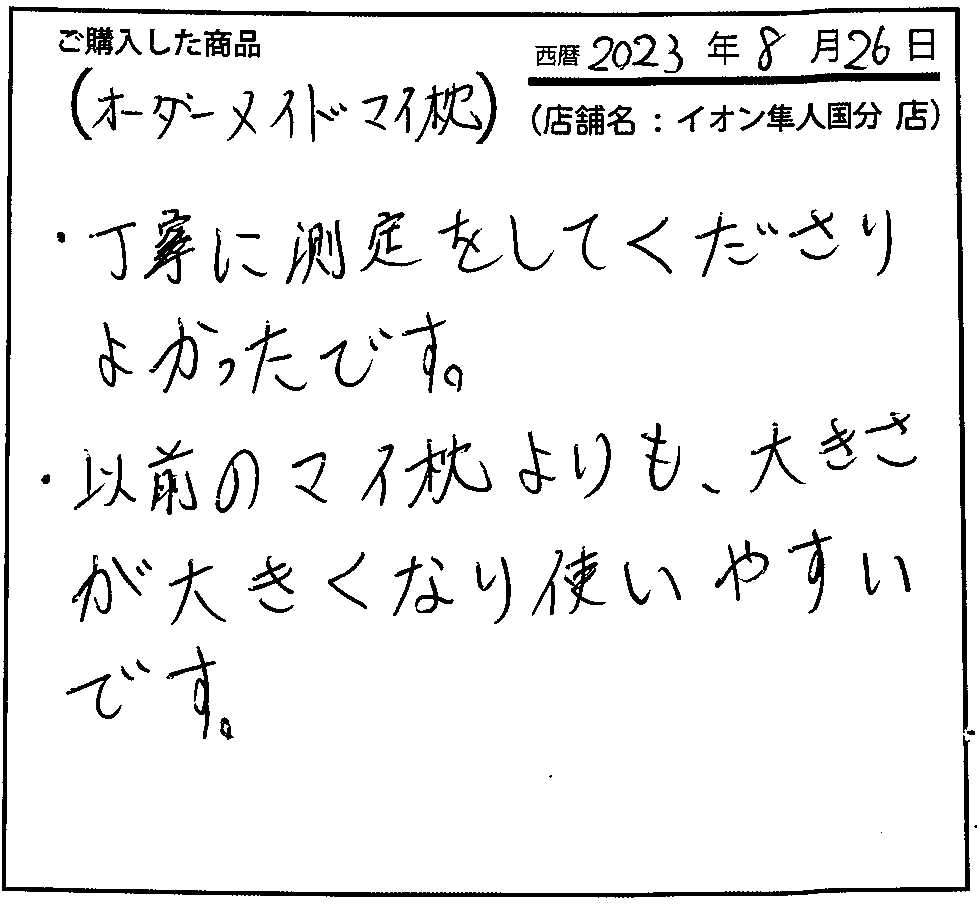 ご購入した商品
西暦 2023 年 8 月 26 日
(オーダーメイドマイ枕)
(店舗名：イオン隼人国分 店)
・丁寧に測定をしてくださり
よかったです。
・以前のマイ枕よりも、大きさ
が大きくなり使いやすい
です。